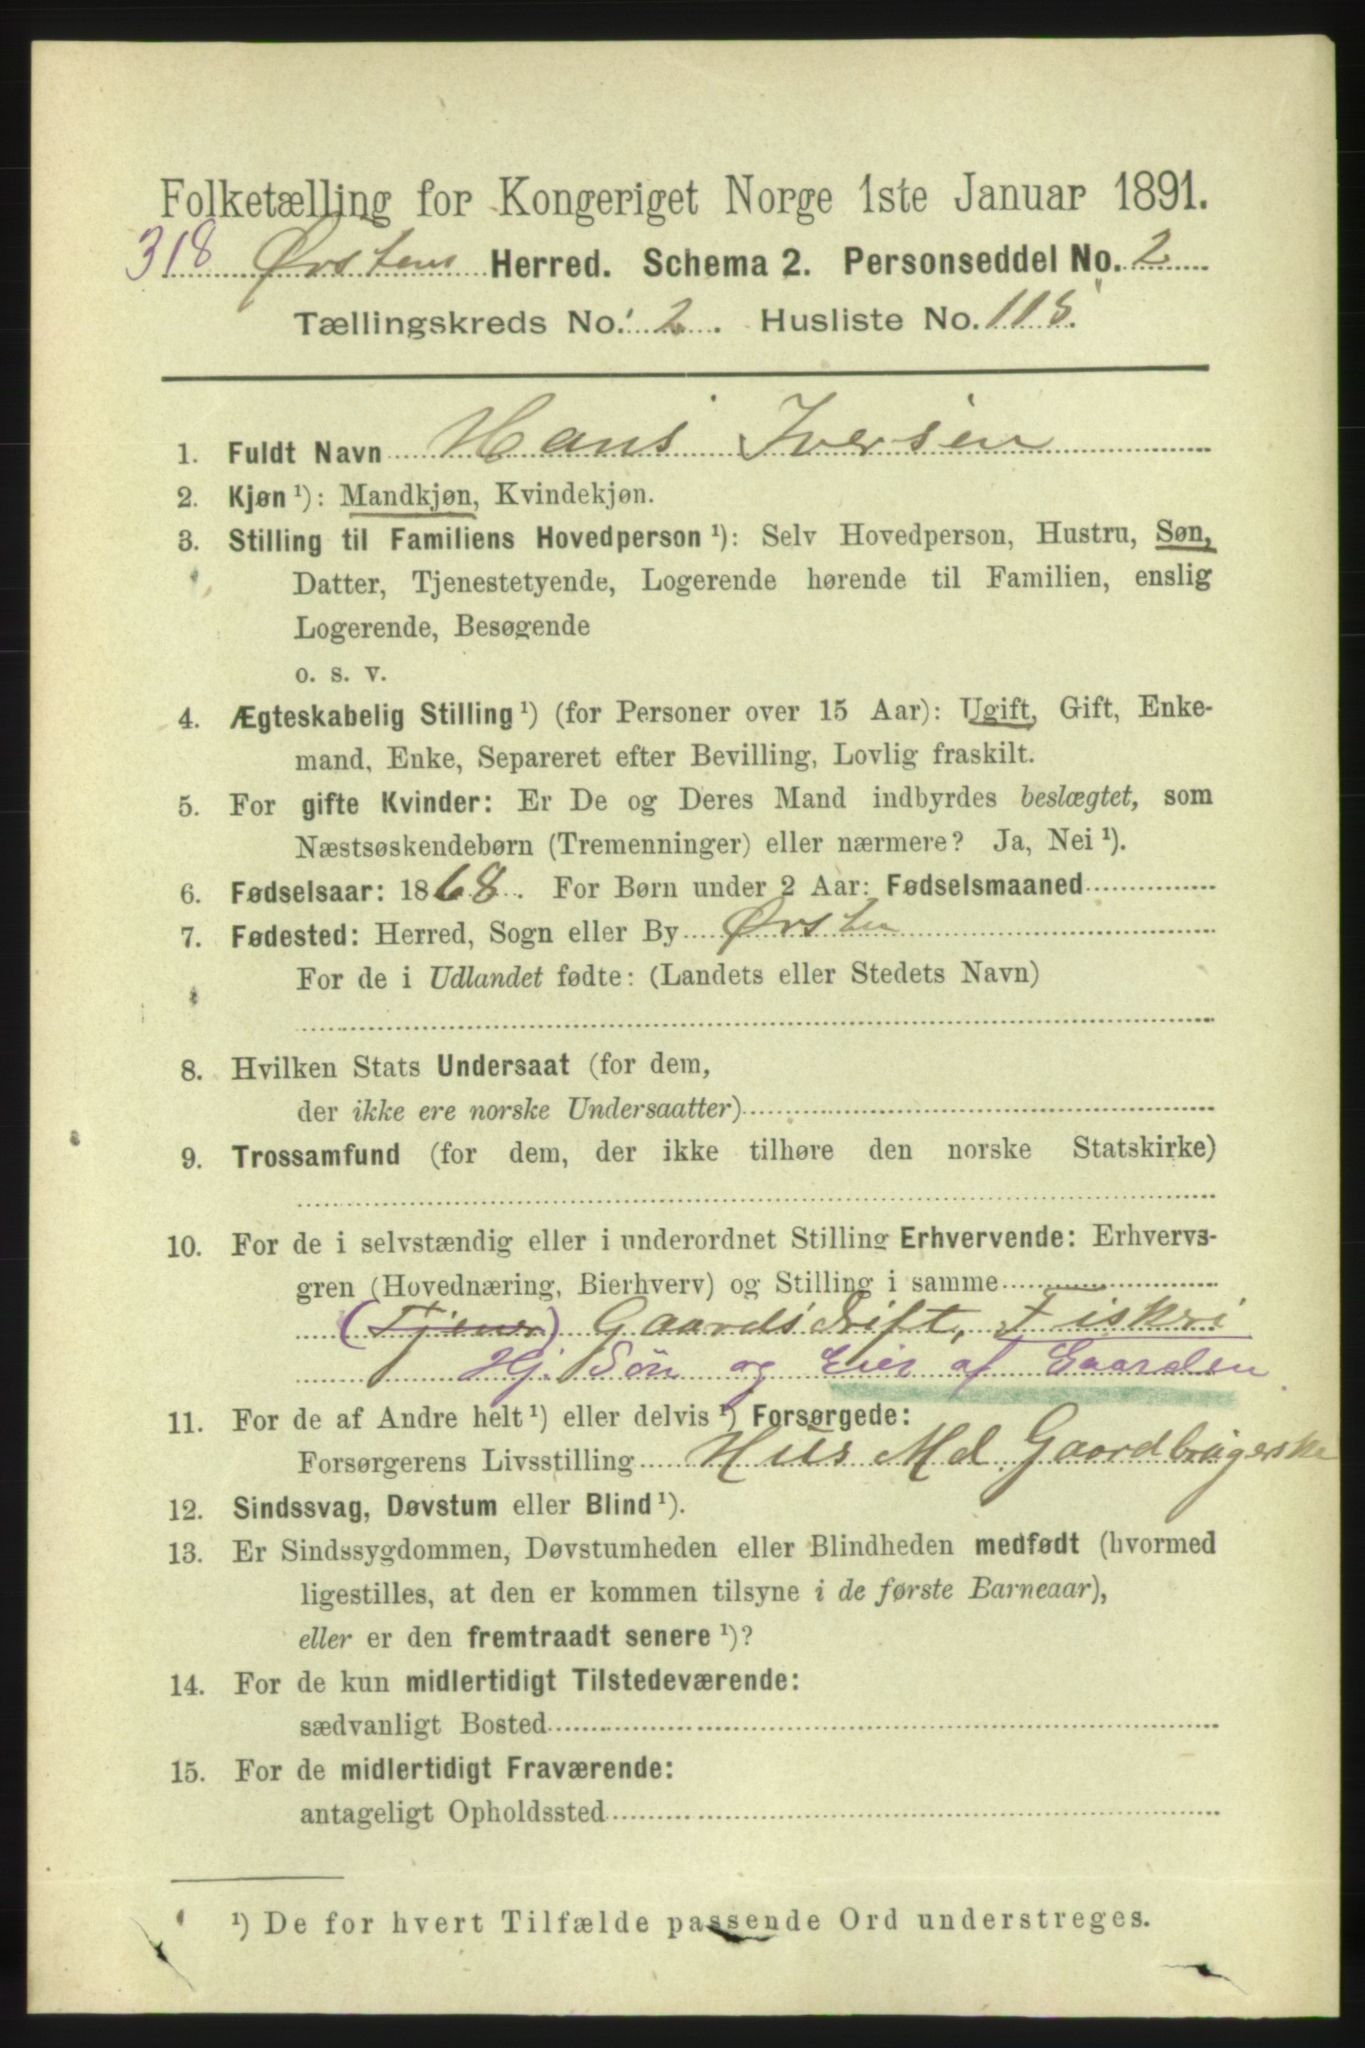 Folketælling for Kongeriget Norge 1ste Januar 1891.
318 Ørsten Herred. Schema 2. Personseddel No. 2
Tællingskreds No. 2. Husliste No. 115.
1. Fuldt Navn Hans Iversen
2. Kjøn ¹): Mandkjøn, Kvindekjøn.
3. Stilling til Familiens Hovedperson ¹): Selv Hovedperson, Hustru, Søn,
Datter, Tjenestetyende, Logerende hørende til Familien, enslig
Logerende, Besøgende
o. s. v.
4. Ægteskabelig Stilling ¹) (for Personer over 15 Aar): Ugift, Gift, Enke-
mand, Enke, Separeret efter Bevilling, Lovlig fraskilt.
5. For gifte Kvinder: Er De og Deres Mand indbyrdes beslægtet, som
Næstsøskendebørn (Tremenninger) eller nærmere? Ja, Nei ¹).
6. Fødselsaar: 1868. For Børn under 2 Aar: Fødselsmaaned
7. Fødested: Herred, Sogn eller By Ørsten
For de i Udlandet fødte: (Landets eller Stedets Navn)
8. Hvilken Stats Undersaat (for dem,
der ikke ere norske Undersaatter)
9. Trossamfund (for dem, der ikke tilhøre den norske Statskirke)
10. For de i selvstændig eller i underordnet Stilling Erhvervende: Erhvervs-
gren (Hovednæring, Bierhverv) og Stilling i samme
(Tjener) Gaardsdrift, Fiskri
Hj. Søn og Eier af Gaarden
11. For de af Andre helt ¹) eller delvis ¹) Forsørgede:
Forsørgerens Livsstilling Huss Md Gaardbrugerske
12. Sindssvag, Døvstum eller Blind ¹).
13. Er Sindssygdommen, Døvstumheden eller Blindheden medfødt (hvormed
ligestilles, at den er kommen tilsyne i de første Barneaar),
eller er den fremtraadt senere ¹)?
14. For de kun midlertidigt Tilstedeværende:
sædvanligt Bosted
15. For de midlertidigt Fraværende:
antageligt Opholdssted
¹) De for hvert Tilfælde passende Ord understreges.